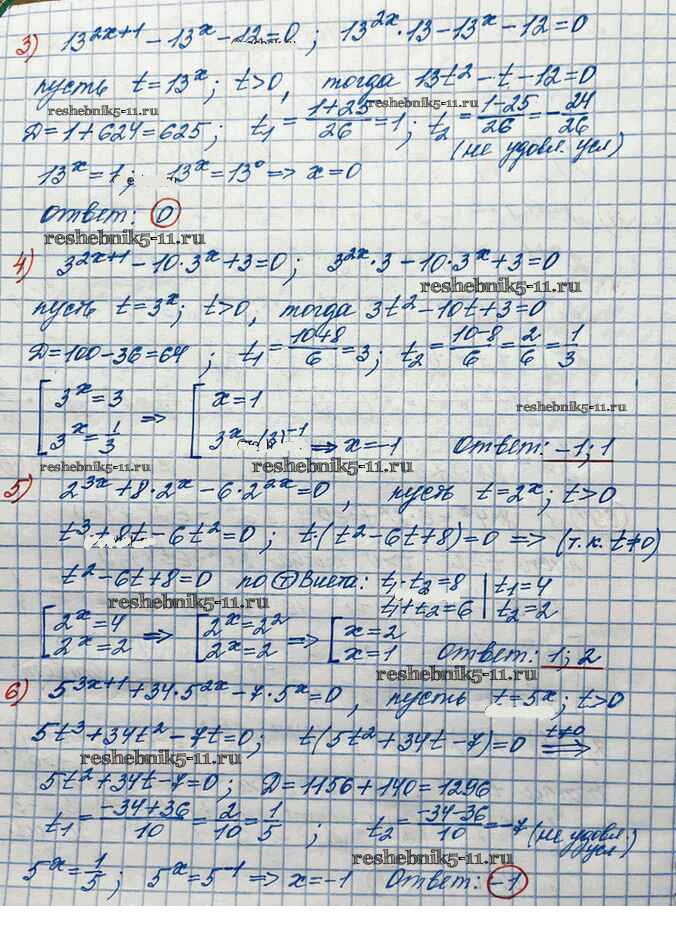 3) 13^(2x+1) - 13^x - 12 = 0 ; 13^(2x) · 13 - 13^x - 12 = 0
пусть t = 13^x ; t > 0, тогда 13t² - t - 12 = 0
reshebnik5-11.ru reshebnik5-11.ru
D = 1 + 624 = 625 ; t₁ = (1+25)/26 = 1 ; t₂ = (1-25)/26 = -24/26
(не удовл. усл)
13^x = 1 ; 13^x = 13^0 => x = 0
Ответ: 0
reshebnik5-11.ru
4) 3^(2x+1) - 10 · 3^x + 3 = 0 ; 3^(2x) · 3 - 10 · 3^x + 3 = 0
reshebnik5-11.ru
пусть t = 3^x ; t > 0, тогда 3t² - 10t + 3 = 0
reshebnik5-11.ru
D = 100 - 36 = 64 ; t₁ = (10+8)/6 = 3 ; t₂ = (10-8)/6 = 2/6 = 1/3
[ 3^x = 3 => [ x = 1
reshebnik5-11.ru
3^x = 1/3 3^x = (3)^-1 => x = -1 Ответ: -1; 1
reshebnik5-11.ru reshebnik5-11.ru
5) 2^(3x) + 8 · 2^x - 6 · 2^(2x) = 0, пусть t = 2^x ; t > 0
t³ + 8t - 6t² = 0 ; t · (t² - 6t + 8) = 0 => (т.к. t ≠ 0)
t² - 6t + 8 = 0 по т Виета: t₁ · t₂ = 8 | t₁ = 4
t₁ + t₂ = 6 | t₂ = 2
reshebnik5-11.ru
[ 2^x = 4 => [ 2^x = 2² => [ x = 2
2^x = 2 2^x = 2 x = 1 Ответ: 1; 2
reshebnik5-11.ru
6) 5^(3x+1) + 34 · 5^(2x) - 7 · 5^x = 0, пусть t = 5x ; t > 0
5t³ + 34t² - 7t = 0 ; t(5t² + 34t - 7) = 0 =>(t≠0)
reshebnik5-11.ru
5t² + 34t - 7 = 0 ; D = 1156 + 140 = 1296
t₁ = (-34+36)/10 = 2/10 = 1/5 ; t₂ = (-34-36)/10 = -7 (не удовл. усл)
reshebnik5-11.ru
5^x = 1/5 ; 5^x = 5^-1 => x = -1 Ответ: -1